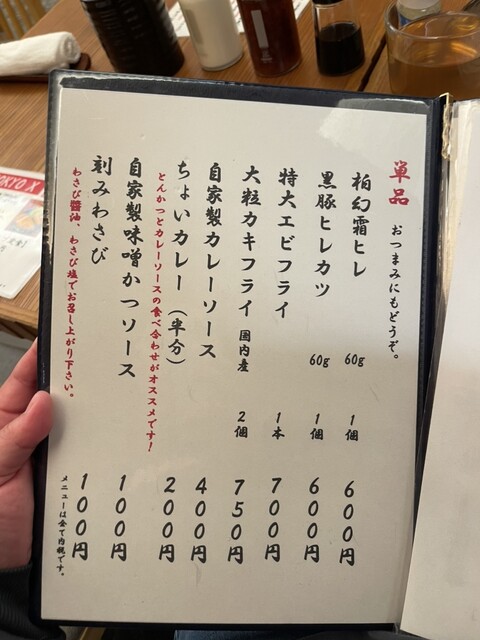 単品 おつまみにもどうぞ。
柏幻霜ヒレ 60g 1個 600円
黒豚ヒレカツ 60g 1個 600円
特大エビフライ 1本 700円
大粒カキフライ 国内産 2個 750円
自家製カレーソース 400円
ちょいカレー（半分） 200円
とんかつとカレーソースの食べ合わせがオススメです！
自家製味噌かつソース 100円
刻みわさび 100円
わさび醬油、わさび塩でお召し上がり下さい。
メニューは全て内税です。
OKYO X